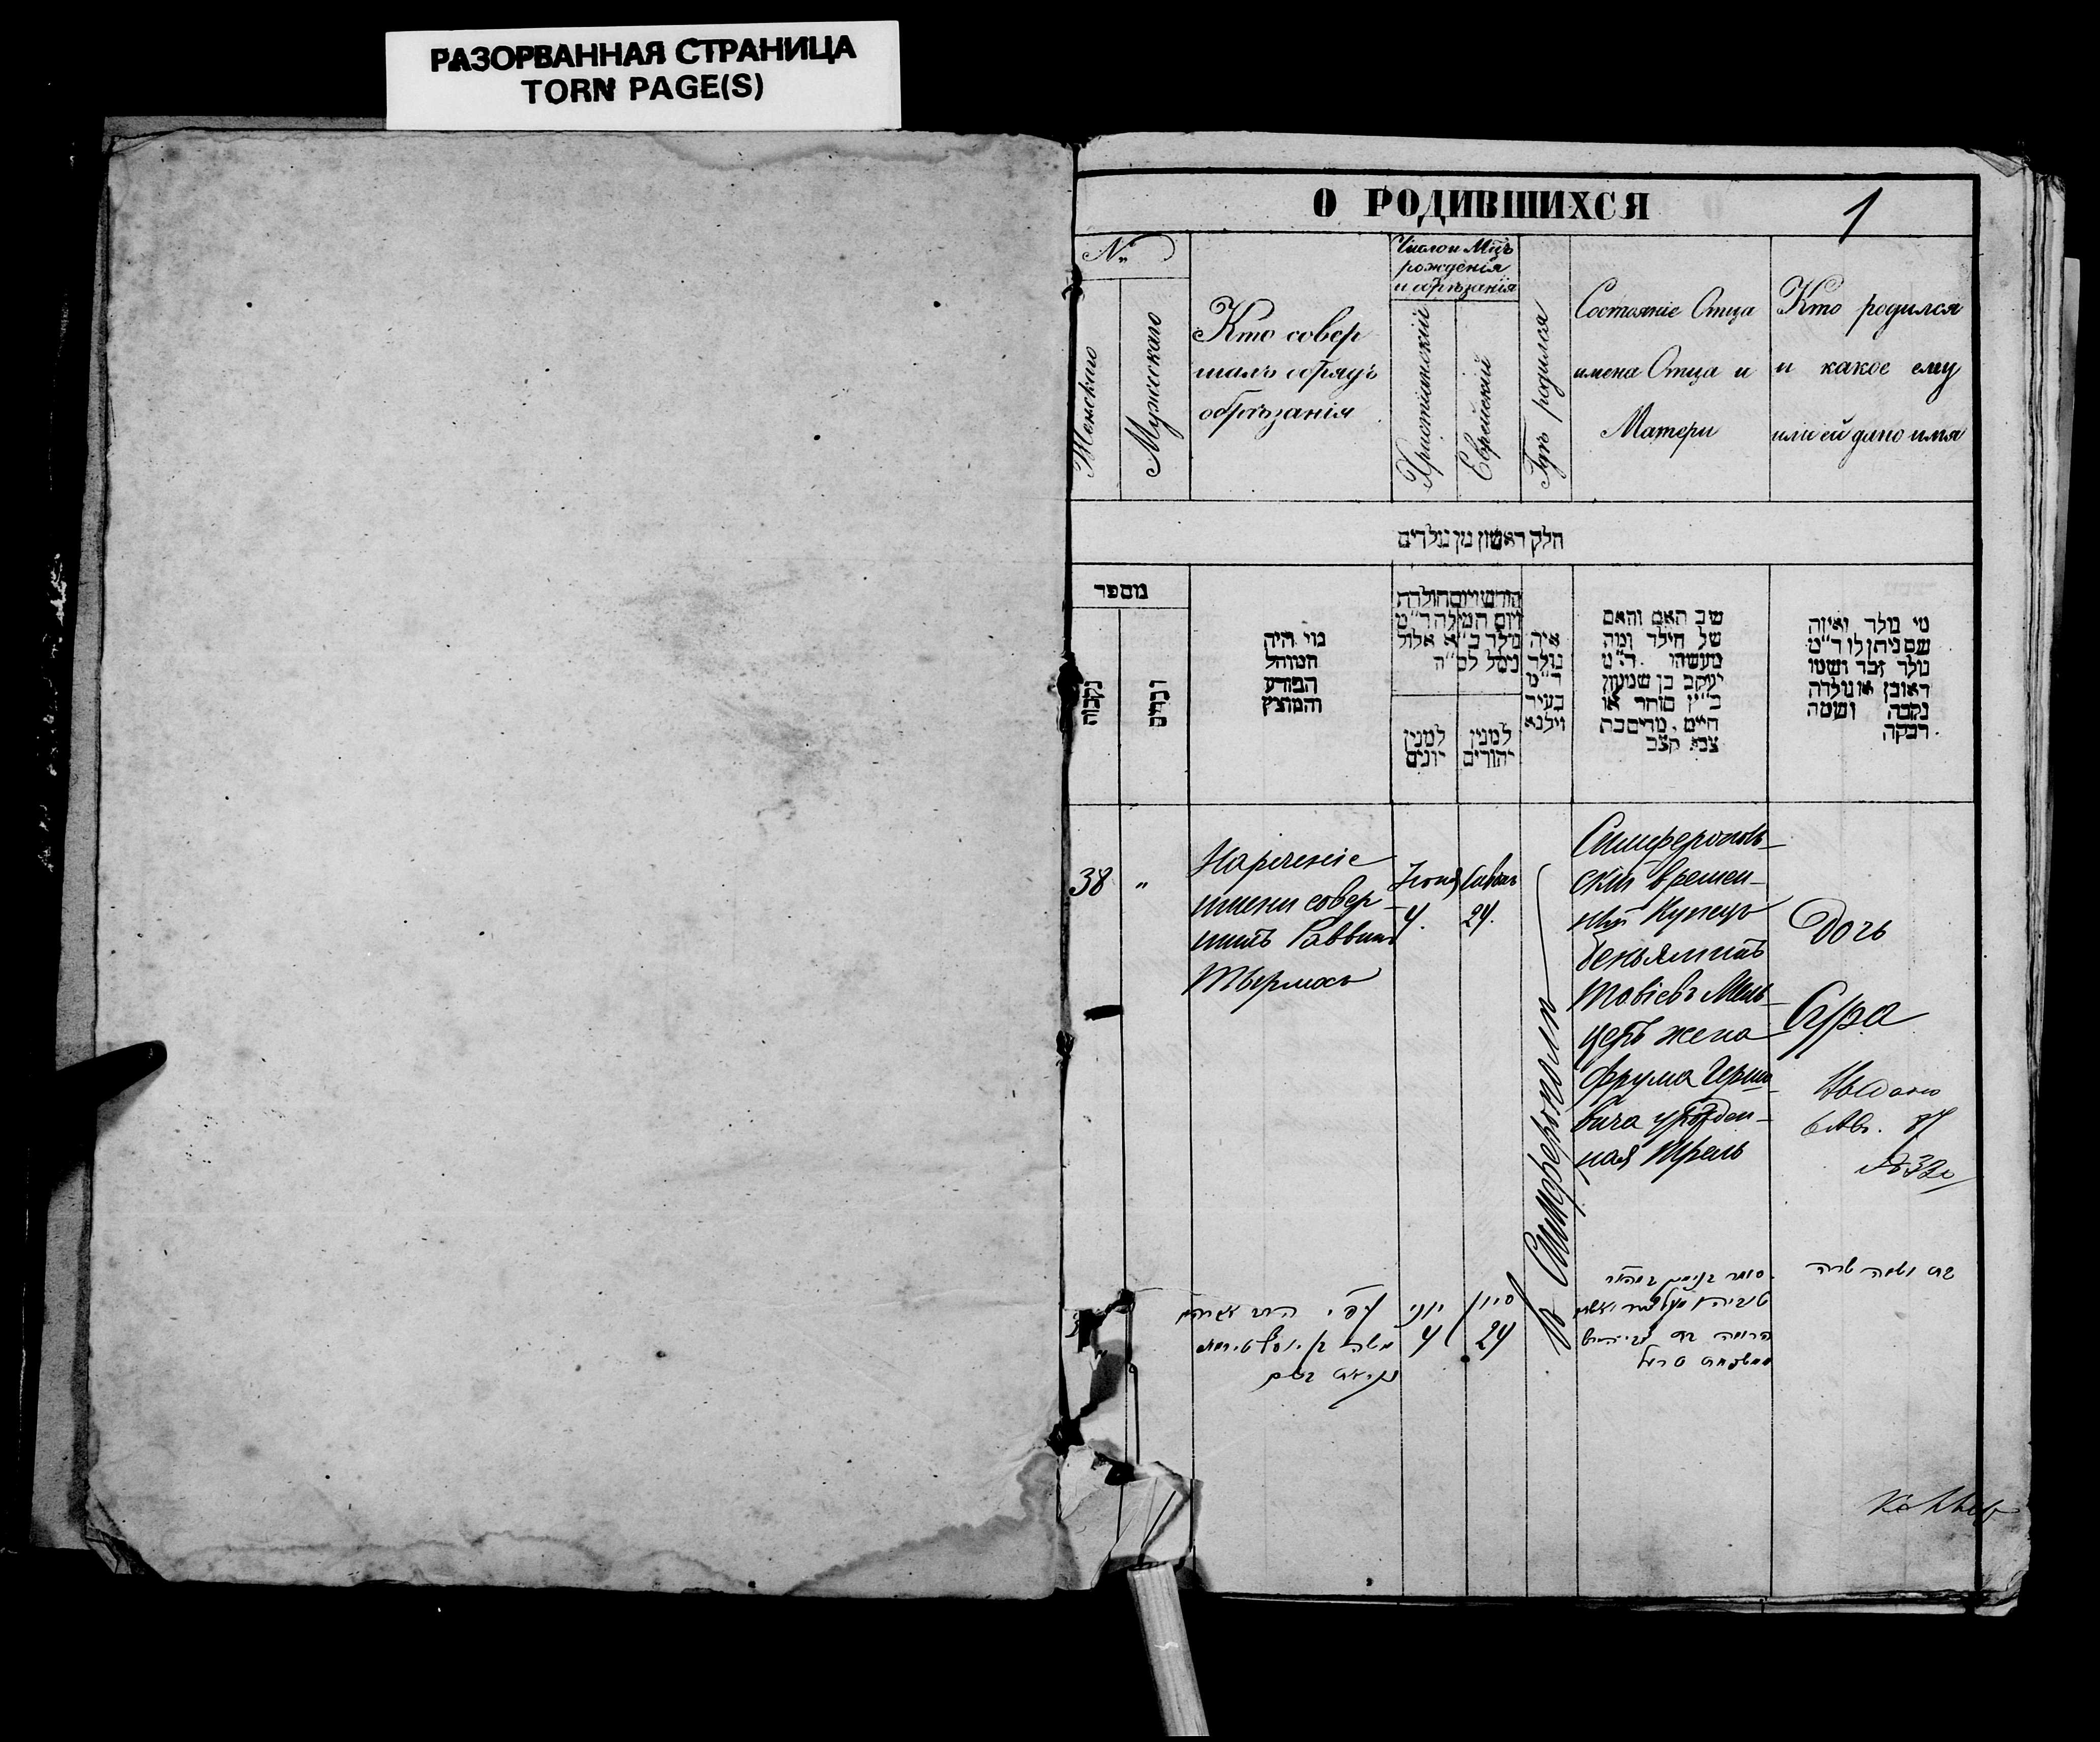 РАЗОРВАННАЯ СТРАНИЦА
TORN PAGE(S)
О РОДИВШИХСЯ
1
№
Женскаго
Мужескаго
Кто совер
шалъ обрядъ
обрѣзанія
Число и Мцъ
рожденія
и обрѣзанія
Христіанскій
Еврейскій
Гдѣ родился
Состояніе Отца
имена Отца и
Матери
Кто родился
и какое ему
или ей дано имя
חלק ראשון מן נולדים
מספר
נקבות
זכרים
מי היה
המוהל
הפורע
והמוצץ
חודש ויום הולדת
ויום המילה ד״מ
נולד ב״א אלול
נימל לס״ה
למנין
יונים
למנין
יהודים
איה
נולד
ד״מ
בעיר
ווילנא
שב האב והאם
של הילד ומה
מעשהו ד״מ
יעקב בן שמעון
כ״ץ סוחר או
חייט, מרים בת
צבי קצב
מי נולד ואיזה
שם ניתן לו ד״מ
נולד זכר ושמו
ראובן או נולדה
נקבה ושמה
רבקה
38
"
Нареченіе
имени совер-
шилъ Раввинъ
Іюня
4.
Сивонъ
24.
въ Симферополѣ
Симферополь-
скій времен-
ный Купецъ
Беньяминъ
Товіевъ Мель-
церъ жена
Фрума Герш-
вича урожден-
ная
Дочь
Сура
Выдано
יוני
4
סיון
24
סוחר בנימין
טוביה
פרומה בת
בת ושמה שרה